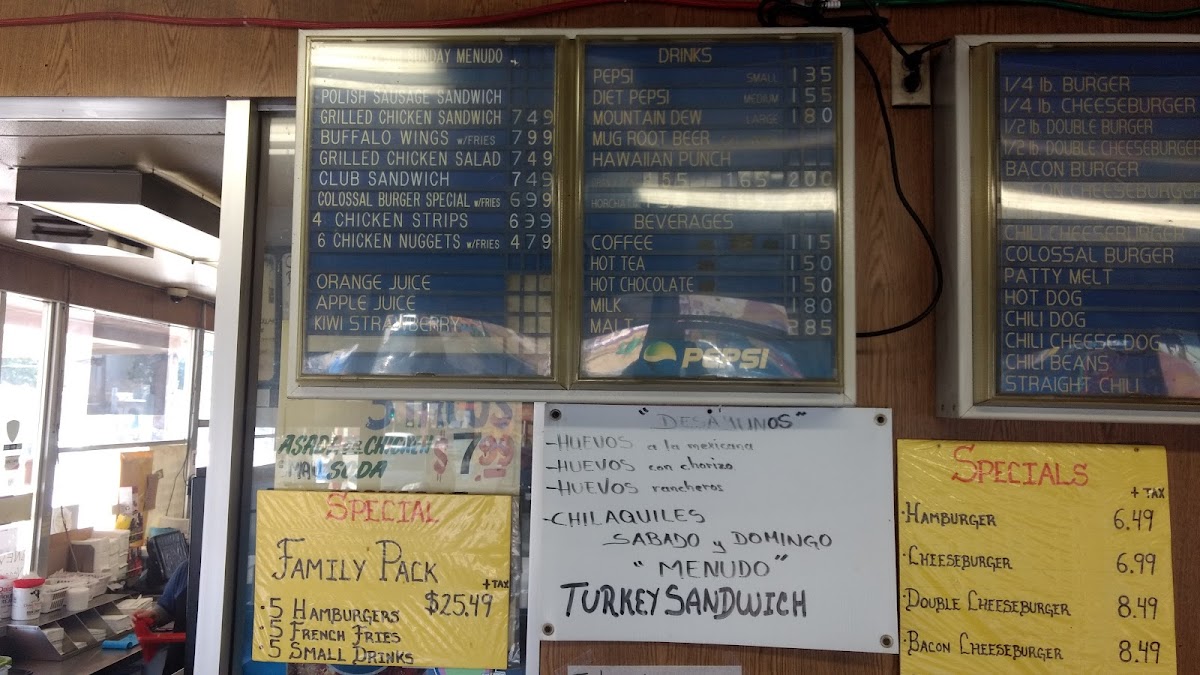 SUNDAY MENUDO
POLISH SAUSAGE SANDWICH
GRILLED CHICKEN SANDWICH 749
BUFFALO WINGS W/FRIES 799
GRILLED CHICKEN SALAD 749
CLUB SANDWICH 749
COLOSSAL BURGER SPECIAL W/FRIES 699
4 CHICKEN STRIPS 699
6 CHICKEN NUGGETS W/FRIES 479
ORANGE JUICE
APPLE JUICE
KIWI STRAWBERRY
DRINKS
PEPSI SMALL 135
DIET PEPSI MEDIUM 155
MOUNTAIN DEW LARGE 180
MUG ROOT BEER
HAWAIIAN PUNCH
165 200
HORCHATA
BEVERAGES
COFFEE 115
HOT TEA 150
HOT CHOCOLATE 150
MILK 180
MALT 285
PEPSI
1/4 lb. BURGER
1/4 lb. CHEESEBURGER
1/2 lb. DOUBLE BURGER
1/2 lb. DOUBLE CHEESEBURGER
BACON BURGER
CHEESEBURGER
CHILI CHEESEBURGER
COLOSSAL BURGER
PATTY MELT
HOT DOG
CHILI DOG
CHILI CHEESE DOG
CHILI BEANS
STRAIGHT CHILI
5 TACOS
ASADA CHICKEN
SODA $7.99
SPECIAL
FAMILY PACK + TAX
$25.49
·5 HAMBURGERS
·5 FRENCH FRIES
·5 SMALL DRINKS
"DESAYUNOS"
-HUEVOS a la mexicana
-HUEVOS con chorizo
-HUEVOS rancheros
-CHILAQUILES
SABADO y DOMINGO
"MENUDO"
TURKEY SANDWICH
SPECIALS
+ TAX
·HAMBURGER 6.49
·CHEESEBURGER 6.99
·DOUBLE CHEESEBURGER 8.49
·BACON CHEESEBURGER 8.49